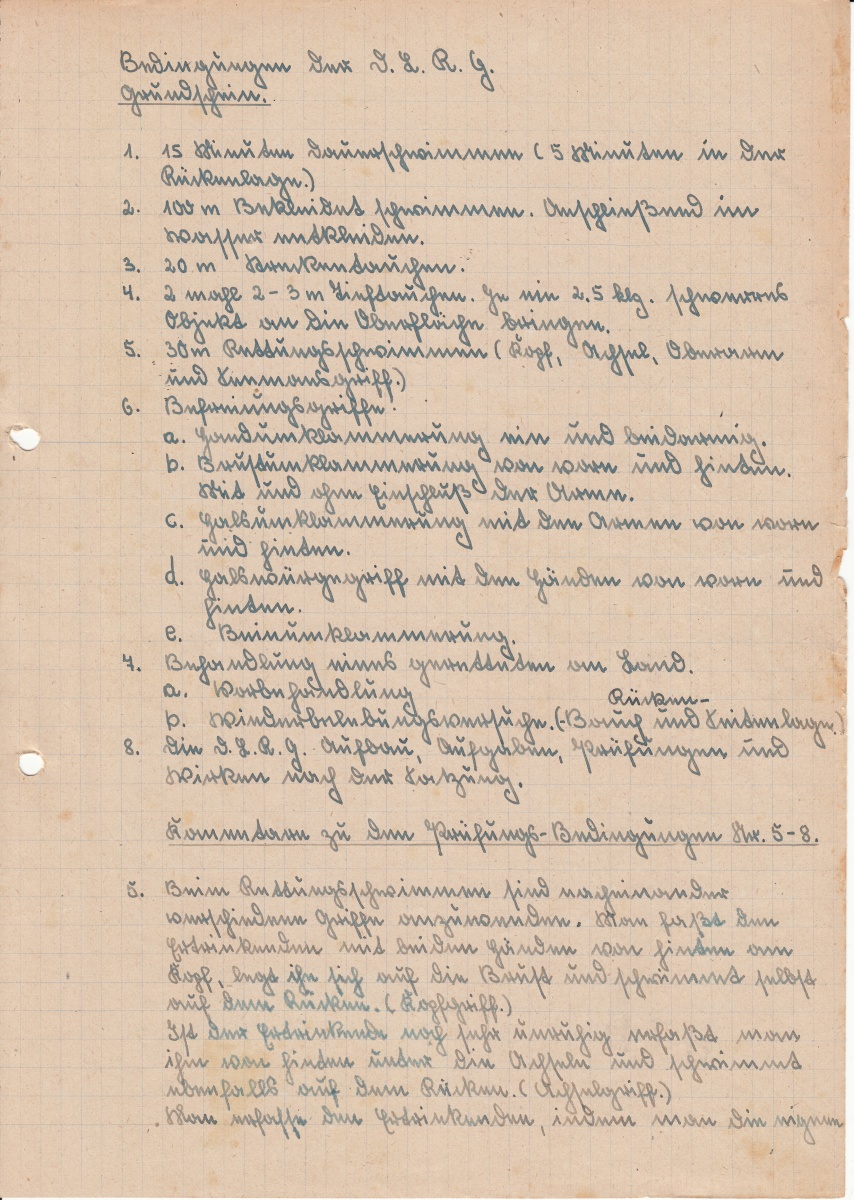 Bedingungen der D. L. R. G.
Grundschein.
1. 15 Minuten Dauerschwimmen (5 Minuten in der
Rückenlage.)
2. 100 m Bekleidet schwimmen. Anschließend im
Wasser entkleiden.
3. 20 m Streckentauchen.
4. 2 mahl 2-3 m Tieftauchen. Je ein 2.5 klg. schwerres
Objekt an die Oberfläche bringen.
5. 30 m Rettungsschwimmen (Kopf, Achsel, Oberarm
und Seemansgriff.)
6. Befreiungsgriffe:
a. Handumklammerung ein und beidarmig.
b. Brustumklammerung von vorn und hinten.
Mit und ohne Einschluß der Arme.
c. Halsumklammerung mit den Armen von vorn
und hinten.
d. Halswürgegriff mit den Händen von vorn und
hinten.
e. Beinumklammerung.
7. Behandlung eines geretteten an Land.
a. Vorbehandlung
Rücken-
b. Wiederbelebungsversuche. (-Bauch und Seitenlage.)
8. Die D. L. R. G. Aufbau, Aufgaben, Prüfungen und
Wirken nach der Satzung.
Komentare zu den Prüfungs-Bedingungen Nr. 5-8.
5. Beim Rettungsschwimmen sind nacheinander
verschiedene Griffe anzuwenden. Man faßt den
Ertrinkenden mit beiden Händen von hinten am
Kopf, legt ihn sich auf die Brust und schwimmt selbst
auf dem Rücken. (Kopfgriff.)
Ist der Ertrinkende noch sehr unruhig erfaßt man
ihn von hinten unter die Achseln und schwimmt
ebenfalls auf dem Rücken. (Achselgriff.)
Man erfasse den Ertrinkenden, indem man die eigene